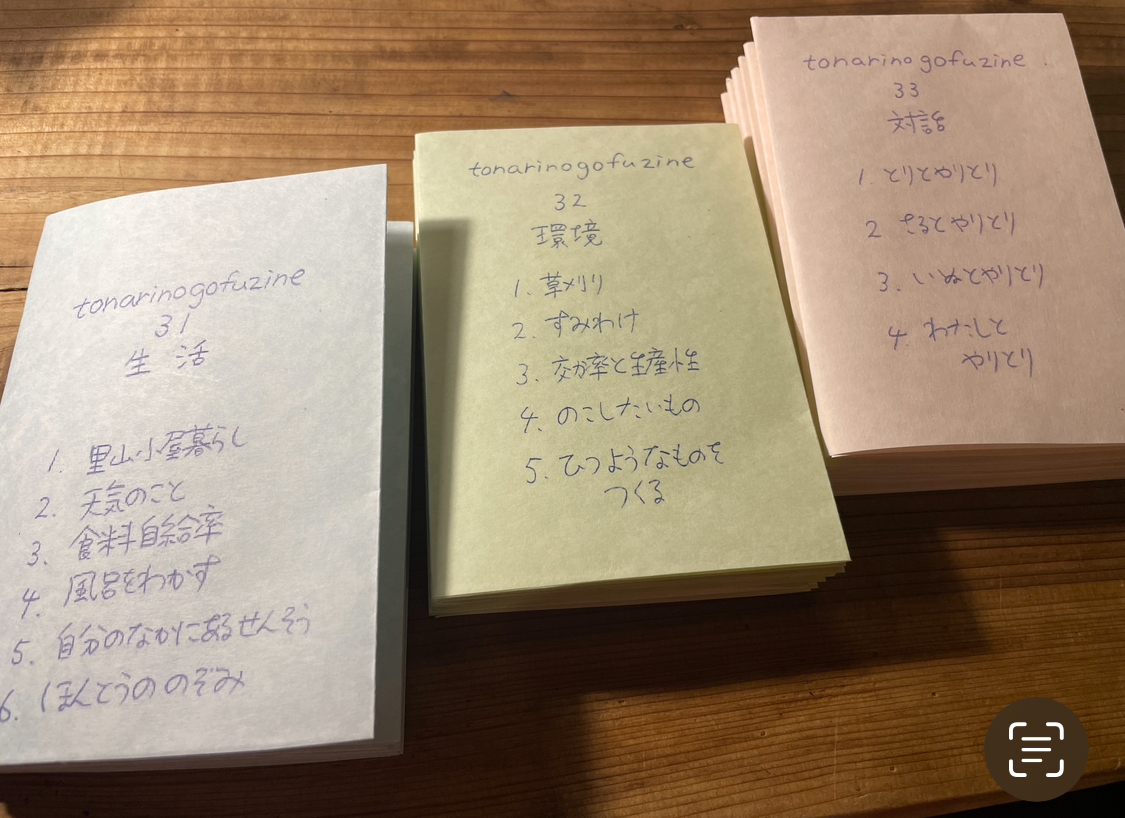 tonarinogofuzine
31
生活
1. 里山小屋暮らし
2. 天気のこと
3. 食料自給率
4. 風呂をわかす
5. 自分のなかにあるせんそう
6. ほんとうののぞみ
tonarinogofuzine
32
環境
1. 草刈り
2. すみわけ
3. 効率と生産性
4. のこしたいもの
5. ひつようなものを
つくる
tonarinogofuzine
33
対話
1. とりとやりとり
2 さるとやりとり
3. いぬとやりとり
4. わたしと
やりとり